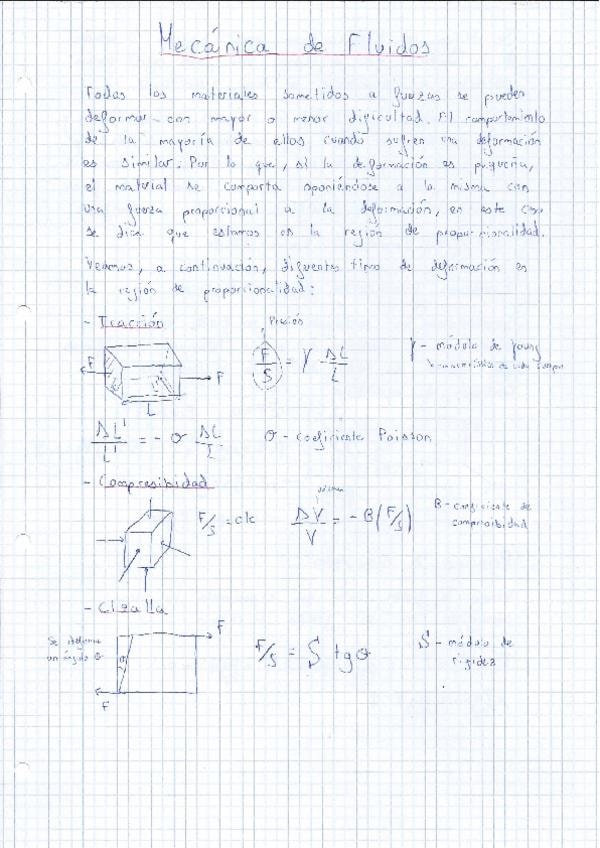 Mecánica de Fluidos
Todos los materiales sometidos a fuerzas se pueden
deformar con mayor o menor dificultad. El comportamiento
de la mayoría de ellos cuando sufren una deformación
es similar. Por lo que, si la deformación es pequeña,
el material se comporta oponiéndose a la misma con
una fuerza proporcional a la deformación, en este caso
se dice que estamos en la región de proporcionalidad.
Veamos, a continuación, diferentes tipos de deformación en
la región de proporcionalidad:
- Tracción
Presión
F F L
F/S = Y ΔL/L
Y - módulo de young
característico de cada cuerpo
ΔL'/L' = - σ ΔL/L
σ - coeficiente Poisson
- Compresibidad
F/S = ctc
volumen
ΔV/V = - B (F/S)
B - coeficiente de
compresibidad
- Cizalla
Se deforma
un ángulo θ
F
θ
F
F/S = S tgθ
S - módulo de
rigidez